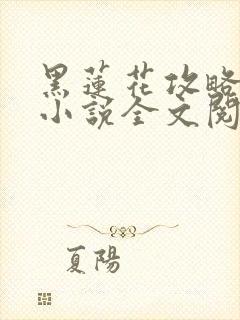 黑蓮花攻略
小說全文閱
夏陽